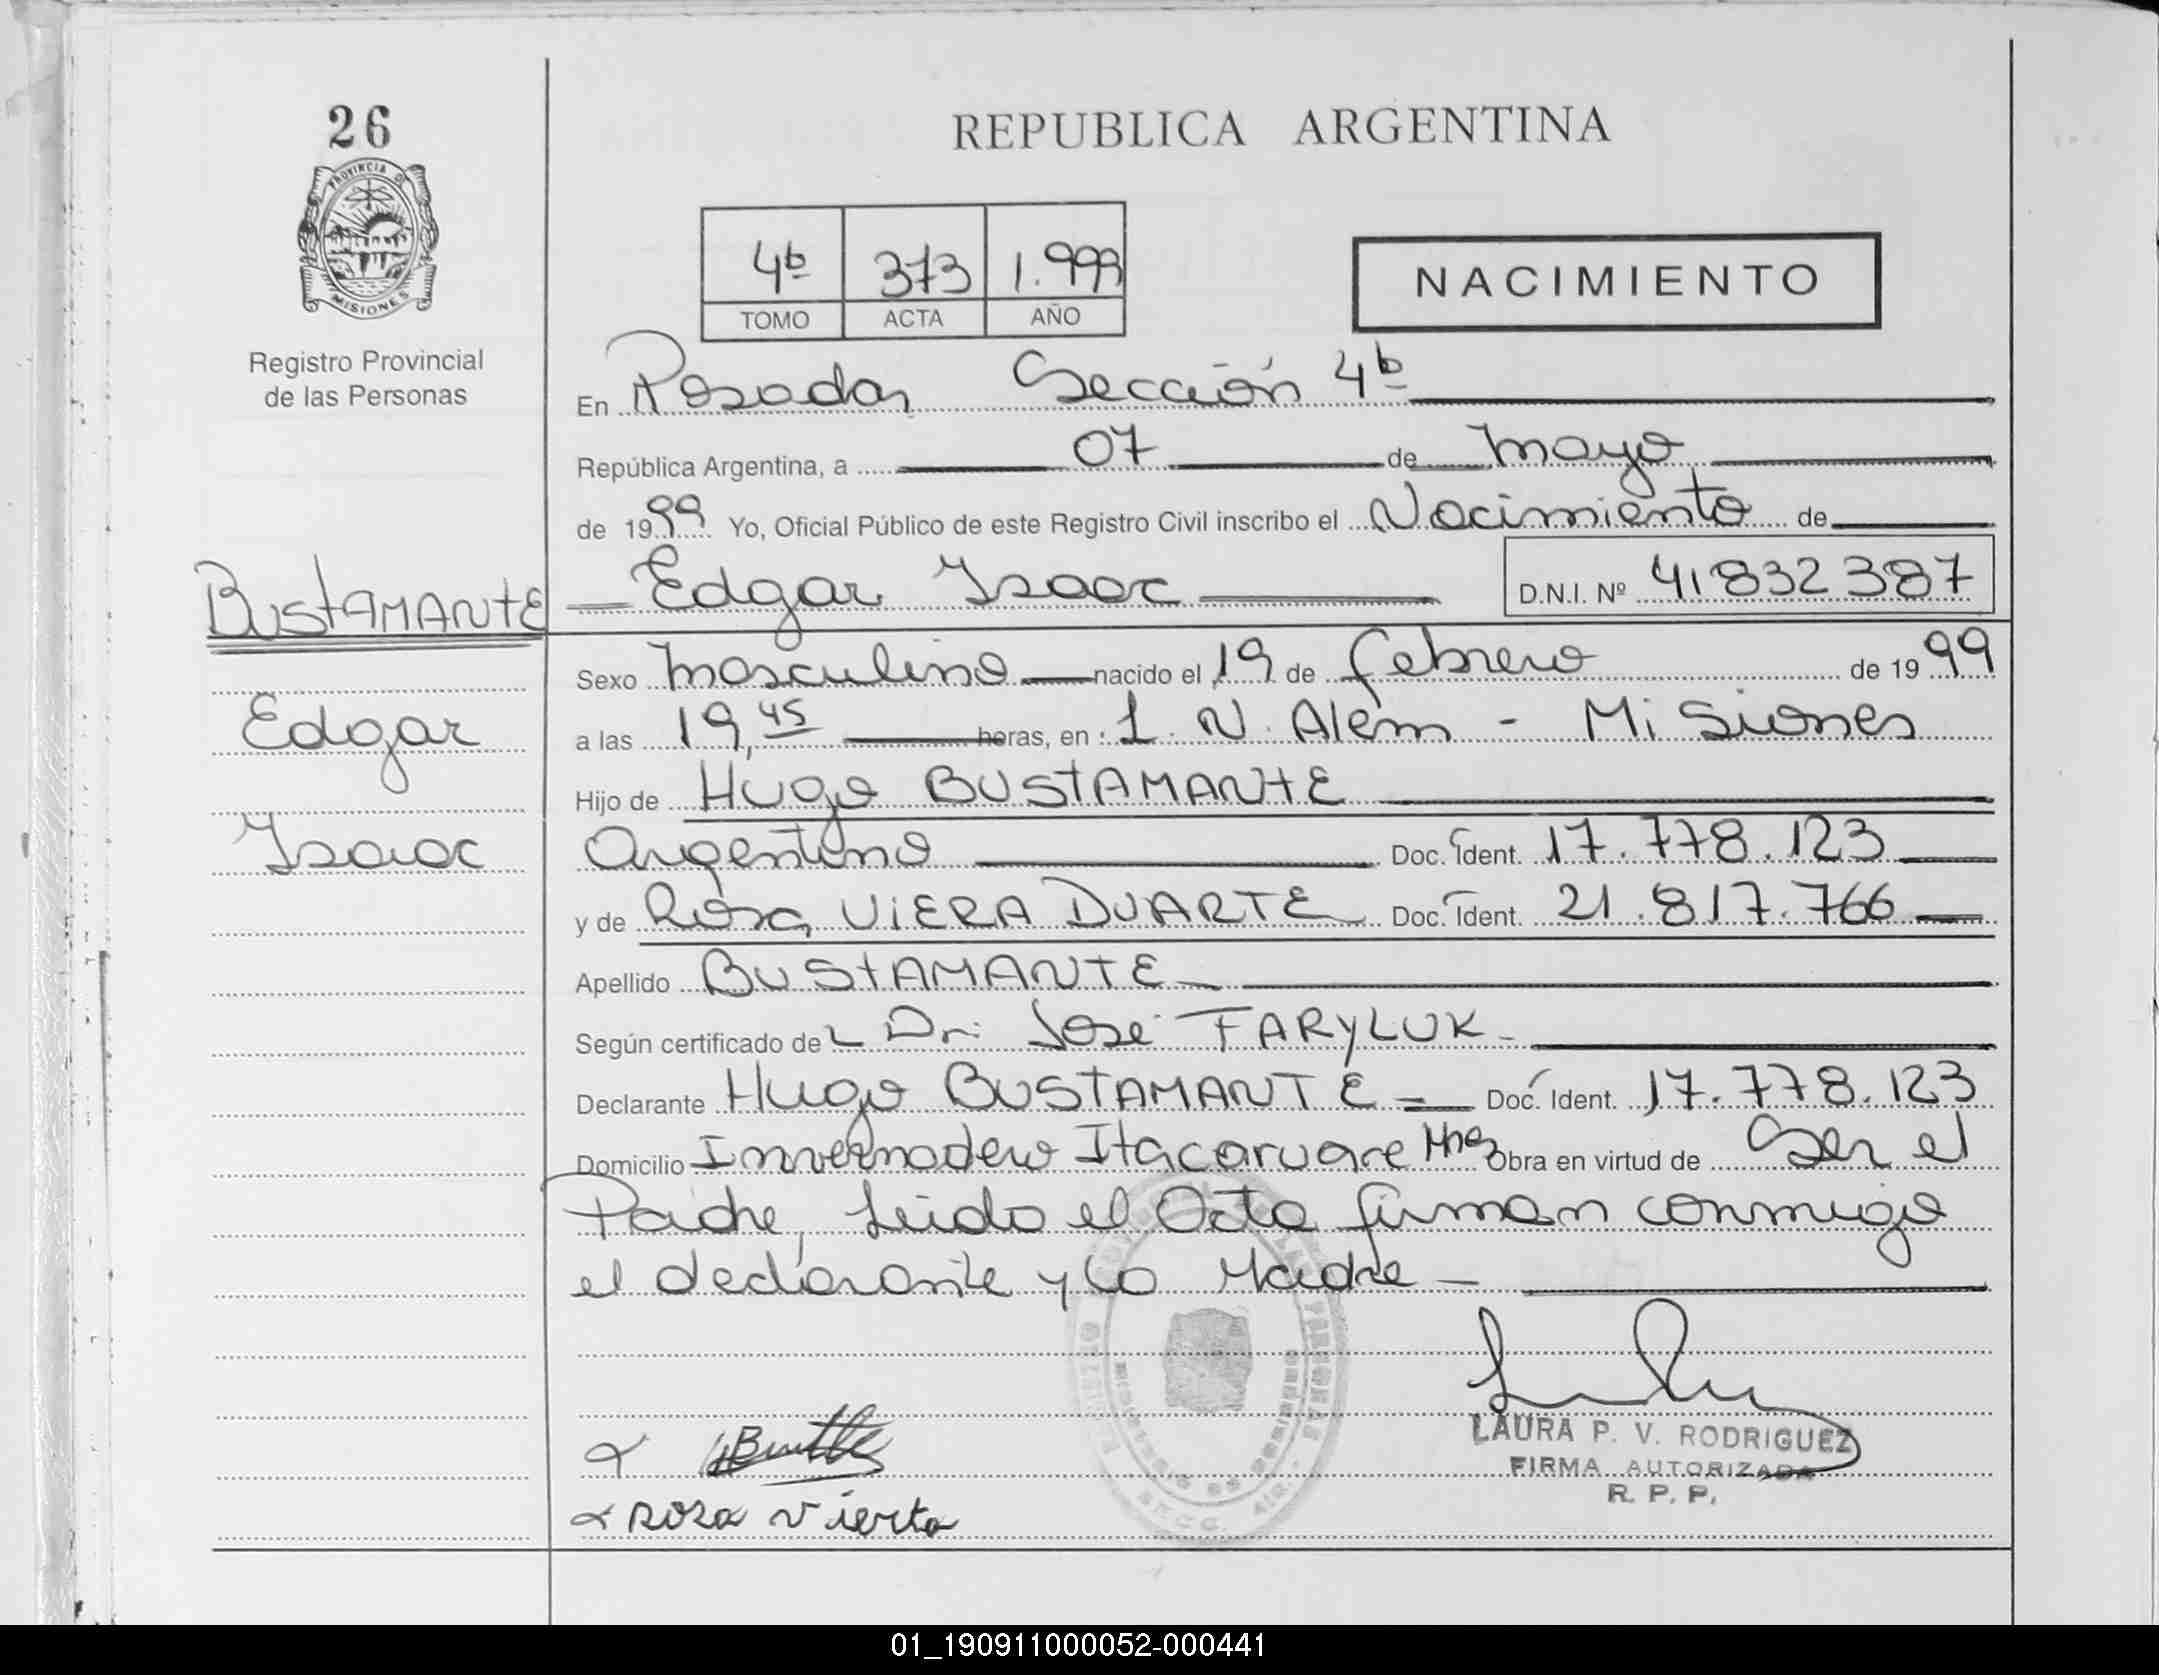 26
PROVINCIA D
MISIONES
Registro Provincial
de las Personas
BUSTAMANTE
Edgar
Isaac
REPUBLICA ARGENTINA
4ª 373 1.999
TOMO ACTA AÑO
NACIMIENTO
En Posadas Sección 4ª
República Argentina, a 07 de Mayo
de 1999 Yo, Oficial Público de este Registro Civil inscribo el Nacimiento de
Edgar Isaac D.N.I. Nº 41832387
Sexo Masculino nacido el 19 de febrero de 1999
a las 19,45 horas, en L. N. Alem - Misiones
Hijo de Hugo BUSTAMANTE
Argentino Doc. Ident. 17.778.123
y de Rosa VIERA DUARTE Doc. Ident. 21.817.766
Apellido BUSTAMANTE
Según certificado de L Dr. José FARYLUK
Declarante Hugo BUSTAMANTE Doc. Ident. 17.778.123
Domicilio Invernadero Itacaruare Mnes Obra en virtud de Ser el
Padre, Leido el Acta firman conmigo
el declarante y la Madre
LAURA P. V. RODRIGUEZ
FIRMA AUTORIZADA
R. P. P.
Rosa Vierta
01_190911000052-000441